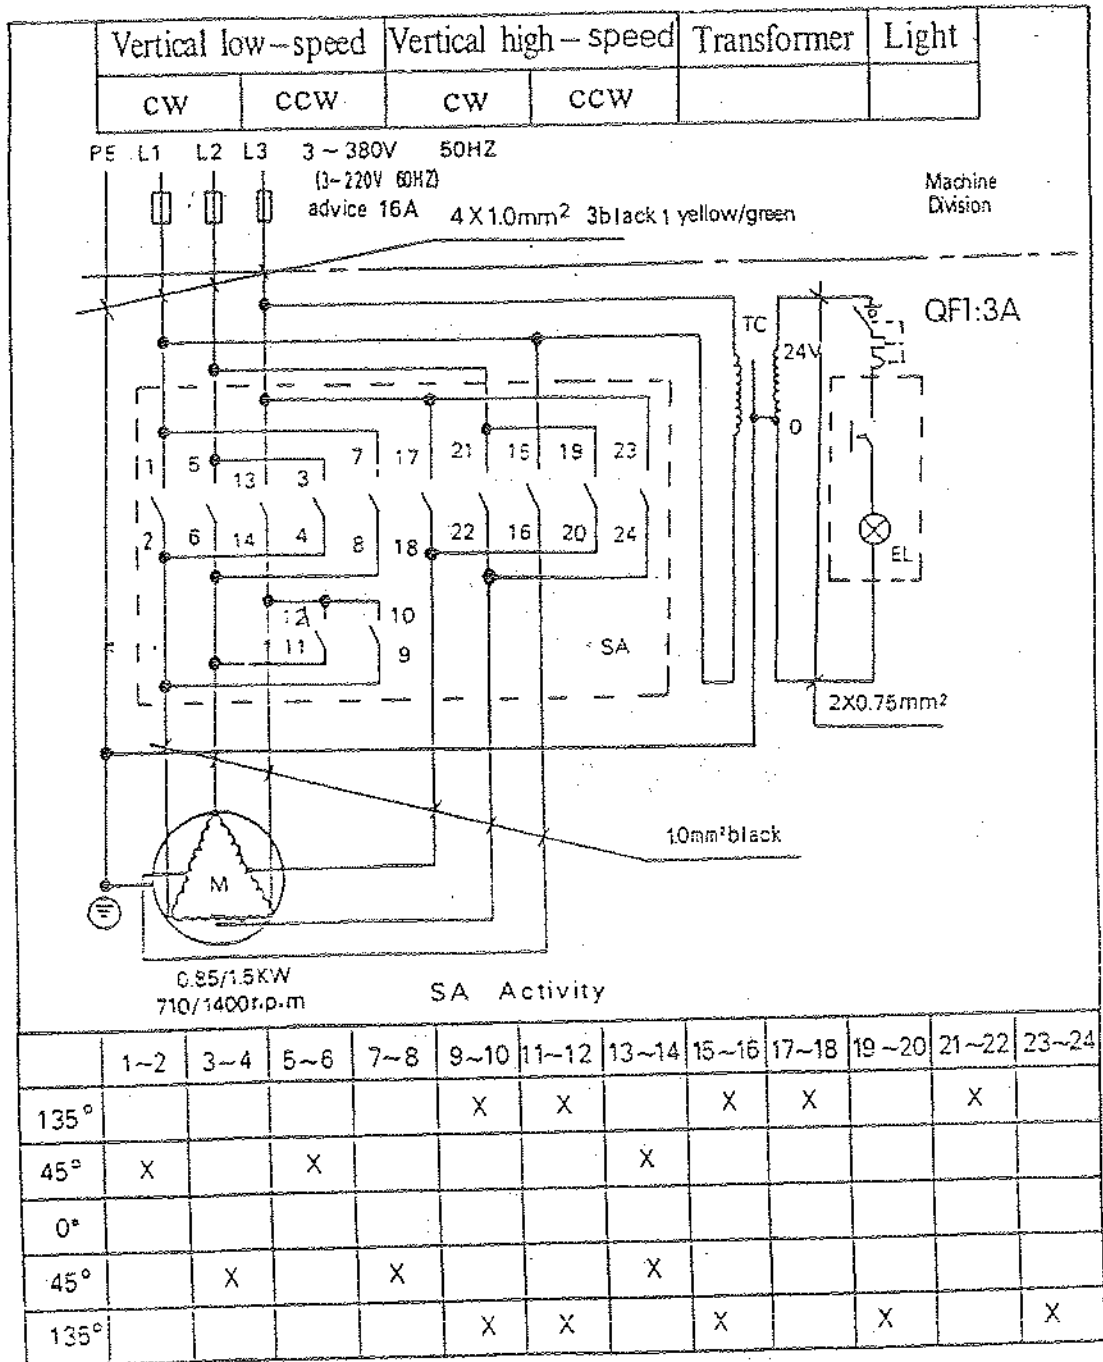 Vertical low-speed Vertical high-speed Transformer Light
CW CCW CW CCW
PE L1 L2 L3 3~380V 50HZ
(3~220V 60HZ)
advice 16A
4X1.0mm² 3black 1 yellow/green
Machine
Division
QF1:3A
TC
24V
0
1 5 13 3 7 17 21 15 19 23
2 6 14 4 8 18 22 16 20 24
EL
12 10
11 9
SA
2X0.75mm²
1.0mm²black
M
0.85/1.5KW
710/1400r.p.m
SA Activity
1~2 3~4 5~6 7~8 9~10 11~12 13~14 15~16 17~18 19~20 21~22 23~24
135° X X X X X
45° X X X
0°
45° X X X
135° X X X X X